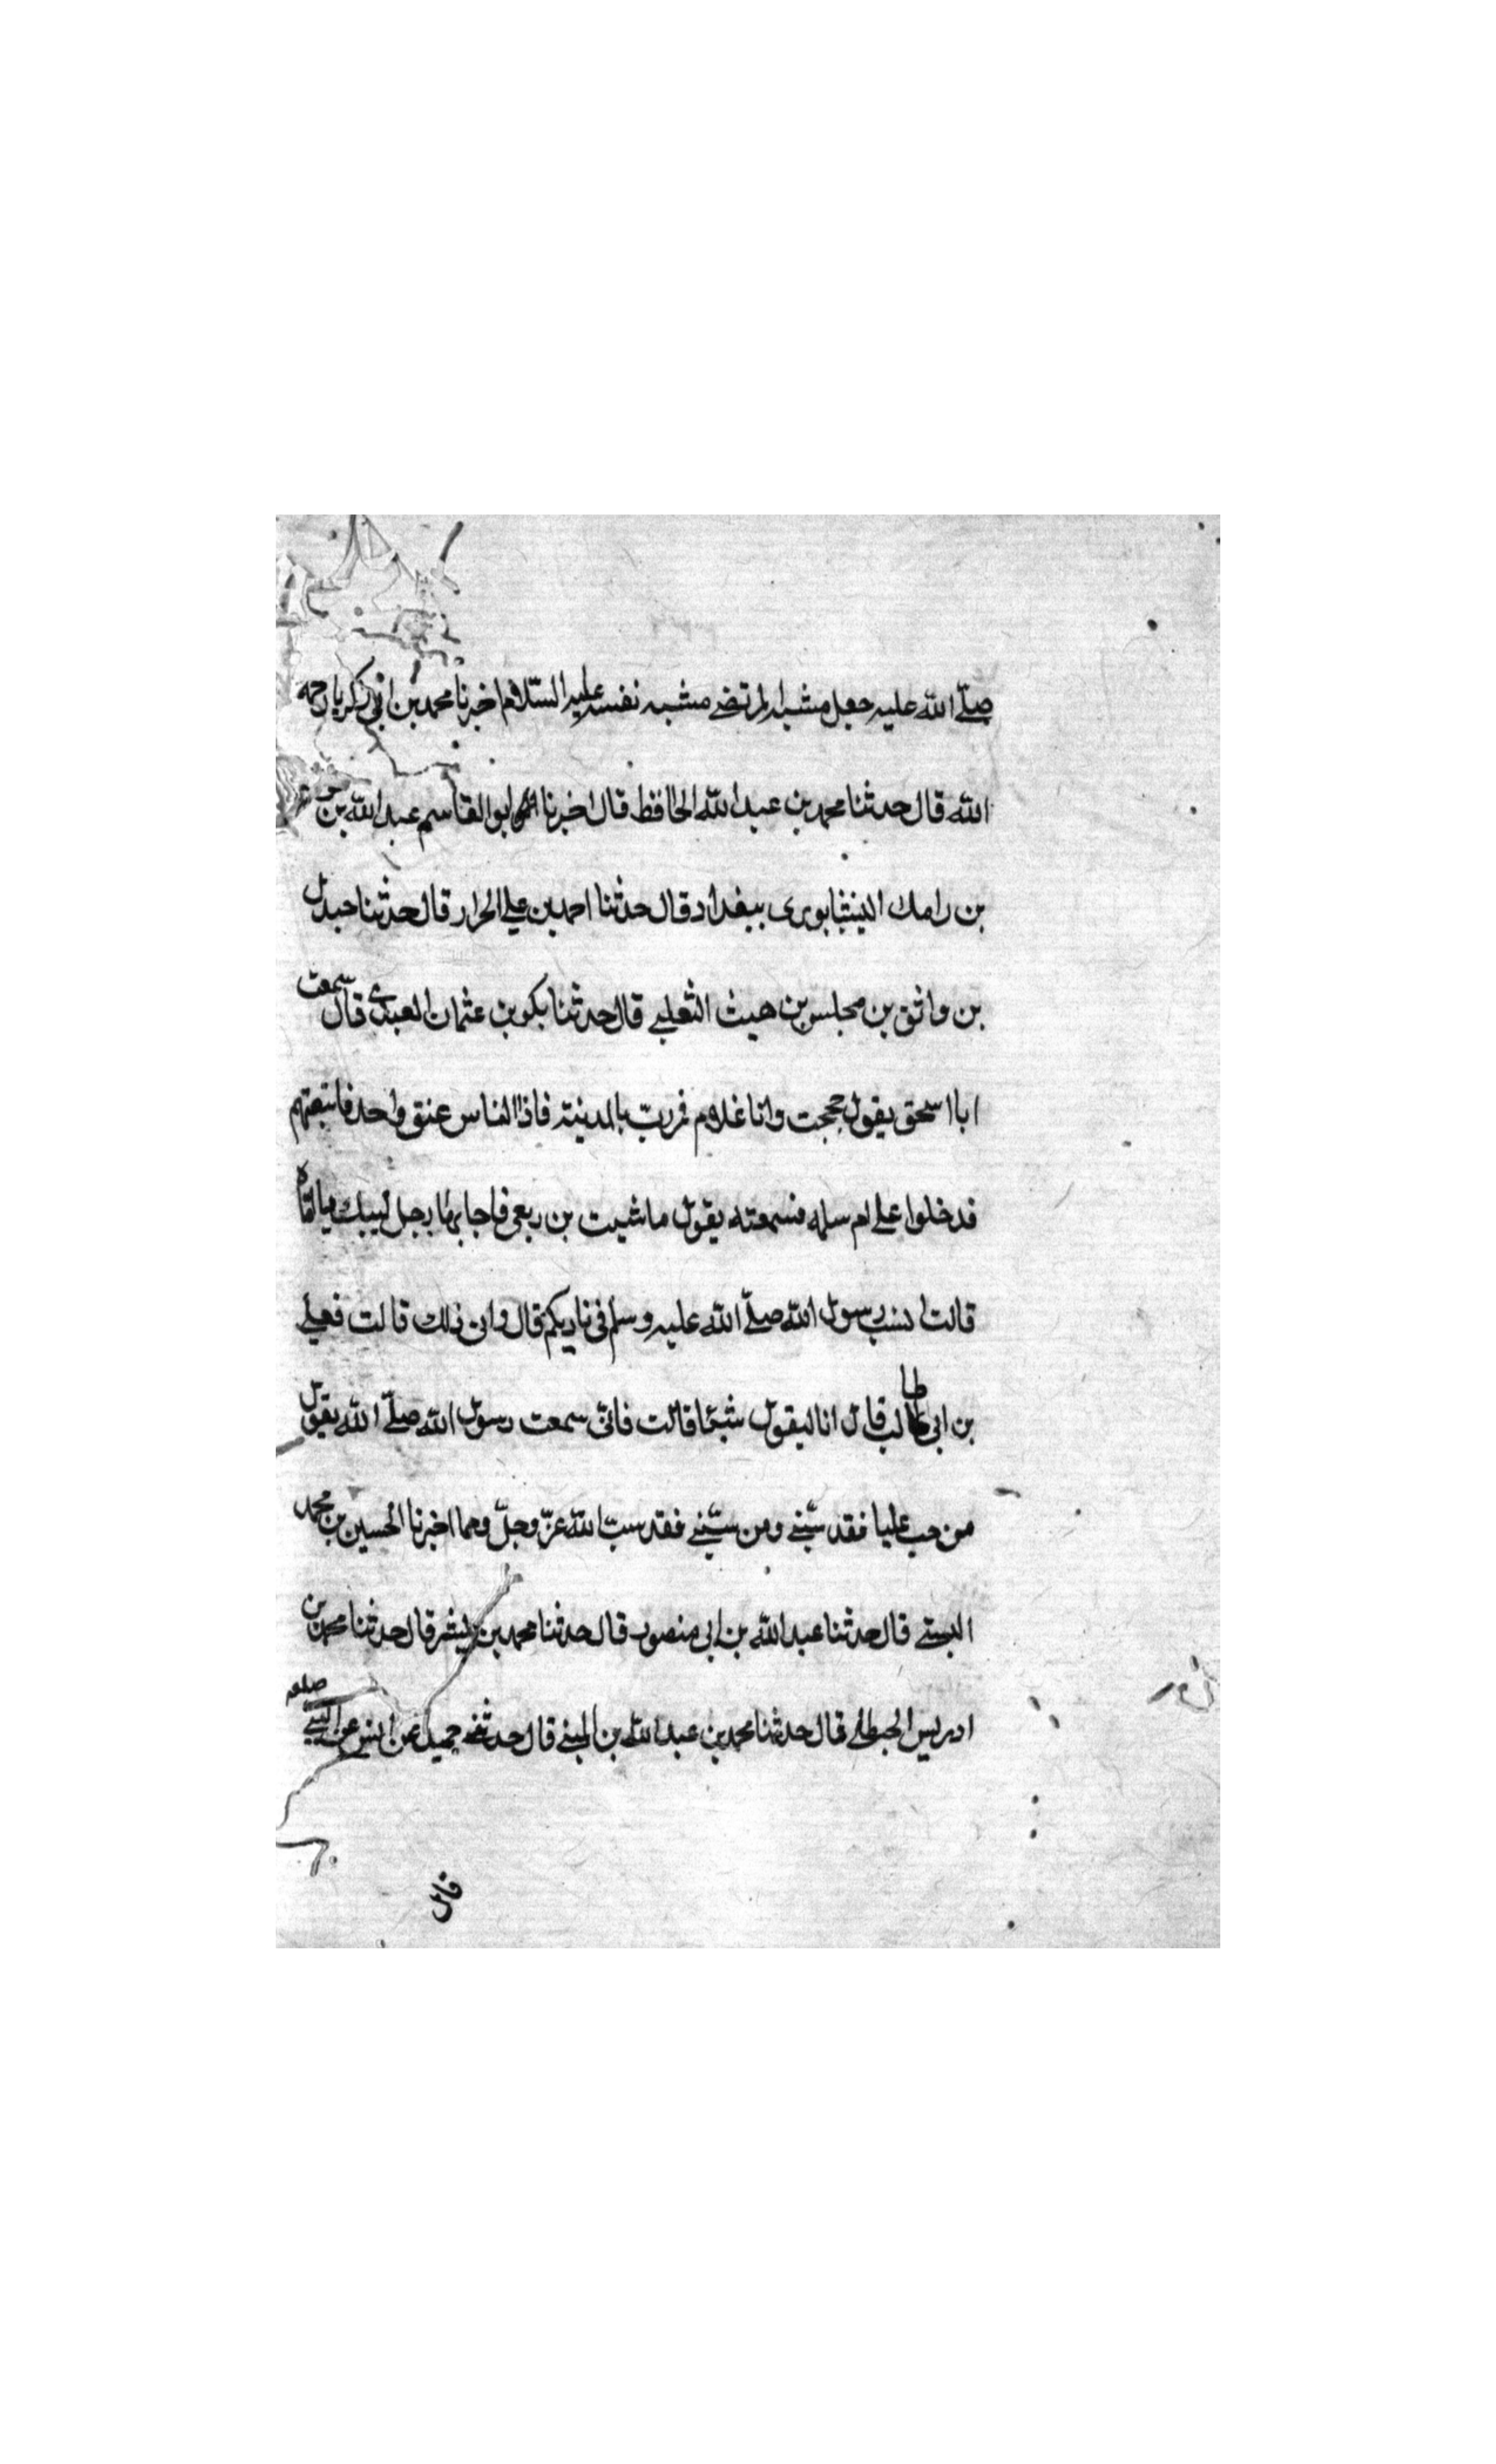 صلّى الله عليه جعل مشبه المرتضى مشبه نفسه عليه السّلام اخبرنا محمد بن ابي زكريا رحمه
الله قال حدثنا محمد بن عبد الله الحافظ قال اخبرنا ابو القاسم عبد الله بن
بن رامك النيشابورى ببغداد قال حدثنا احمد بن علي الحرار قال حدثنا جندل
بن واثق بن مجلس بن هيث الثعلبي قال حدثنا بكو بن عثمان العبدي قال سمعت
ابا اسحق يقول حججت وانا غلام فمررت بالمدينة فاذا الناس عنق واحد فاتبعتهم
فدخلوا على ام سلمه فسمعته يقول ماشيت بن ربعى فاجابها رجل لبيك يا امّاه
قالت ايسب رسول الله صلّى الله عليه وسلم فى ناديكم قال وان ذلك قالت فعلي
بن ابي طالب قال انا ليقول شيئا قالت فانّى سمعت رسول الله صلّى الله يقول
من حب عليا فقد سبّنى ومن سبّنى فقد سبّ الله عزّ وجلّ ومما اخبرنا الحسين بن محمد
البستى قال حدثنا عبد الله بن ابي منصور قال حدثنا محمد بن بشر قال حدثنا محمد بن
ادريس الحنطلى قال حدثنا محمد بن عبد الله بن المثنى قال حدثنى حميد عن انس عن النبي صلعم
قال